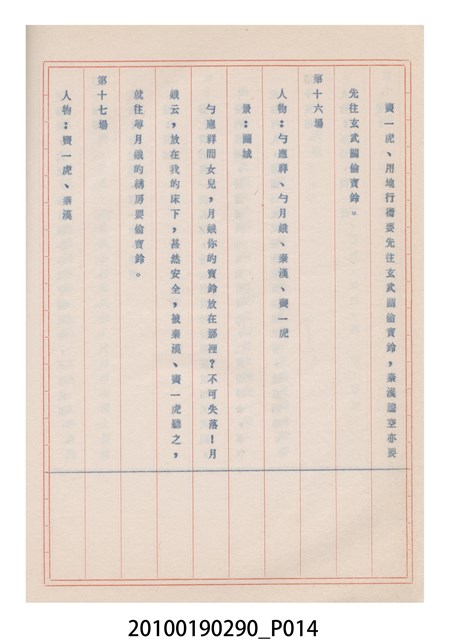 竇一虎、用地行術要先往玄武關偷寶鈴，秦漢騰空亦要
先往玄武關偷寶鈴。
第十六場
人物：勺應祥、勺月娥、秦漢、竇一虎
景：關城
勺應祥問女兒，月娥你的寶鈴放在那裡？不可失落！月
娥云，放在我的床下，甚然安全，被秦漢、竇一虎聽之，
就往勺月娥的綉房要偷寶鈴。
第十七場
人物：竇一虎、秦漢
20100190290_P014